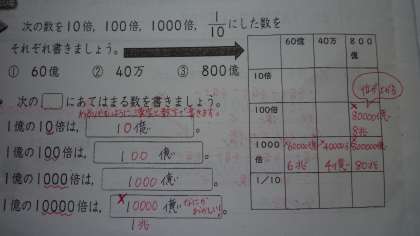 次の数を10倍, 100倍, 1000倍, 1/10 にした数を
それぞれ書きましょう。
① 60億 ② 40万 ③ 800億
次の□にあてはまる数を書きましょう。
1億の10倍は, 10億 。
1億の100倍は, 100億 。
1億の1000倍は, 1000億 。
1億の10000倍は, 10000億 。
1兆
60億 40万 800億
10倍
100倍 80000億
8兆
1000倍 60000億 40000万 800000億
6兆 4億 80兆
1/10